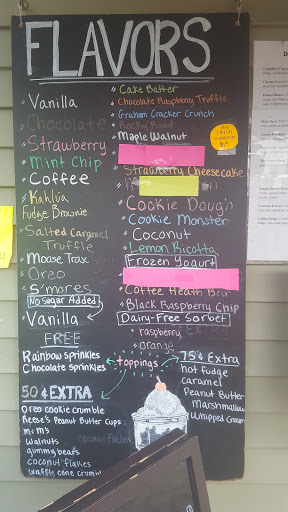 FLAVORS
Vanilla
Chocolate
Strawberry
Mint Chip
Coffee
Kahlúa
Fudge Brownie
Salted Caramel
Truffle
Moose Trax
Oreo
S'mores
No Sugar Added
Vanilla
Cake Batter
Chocolate Raspberry Truffle
Graham Cracker Crunch
Rocky Road
Maple Walnut
Strawberry Cheesecake
Cookie Dough
Cookie Monster
Coconut
Lemon Ricotta
Frozen Yogurt
Coffee Heath Bar
Black Raspberry Chip
Dairy-Free Sorbet
raspberry
orange
toppings
FREE
Rainbow sprinkles
Chocolate sprinkles
50¢ EXTRA
Oreo cookie crumble
Reese's Peanut Butter Cups
m+m's
walnuts
gummy bears
coconut flakes
waffle cone crumbl
75¢ Extra
hot fudge
caramel
Peanut Butter
Marshmallow
whipped Cream